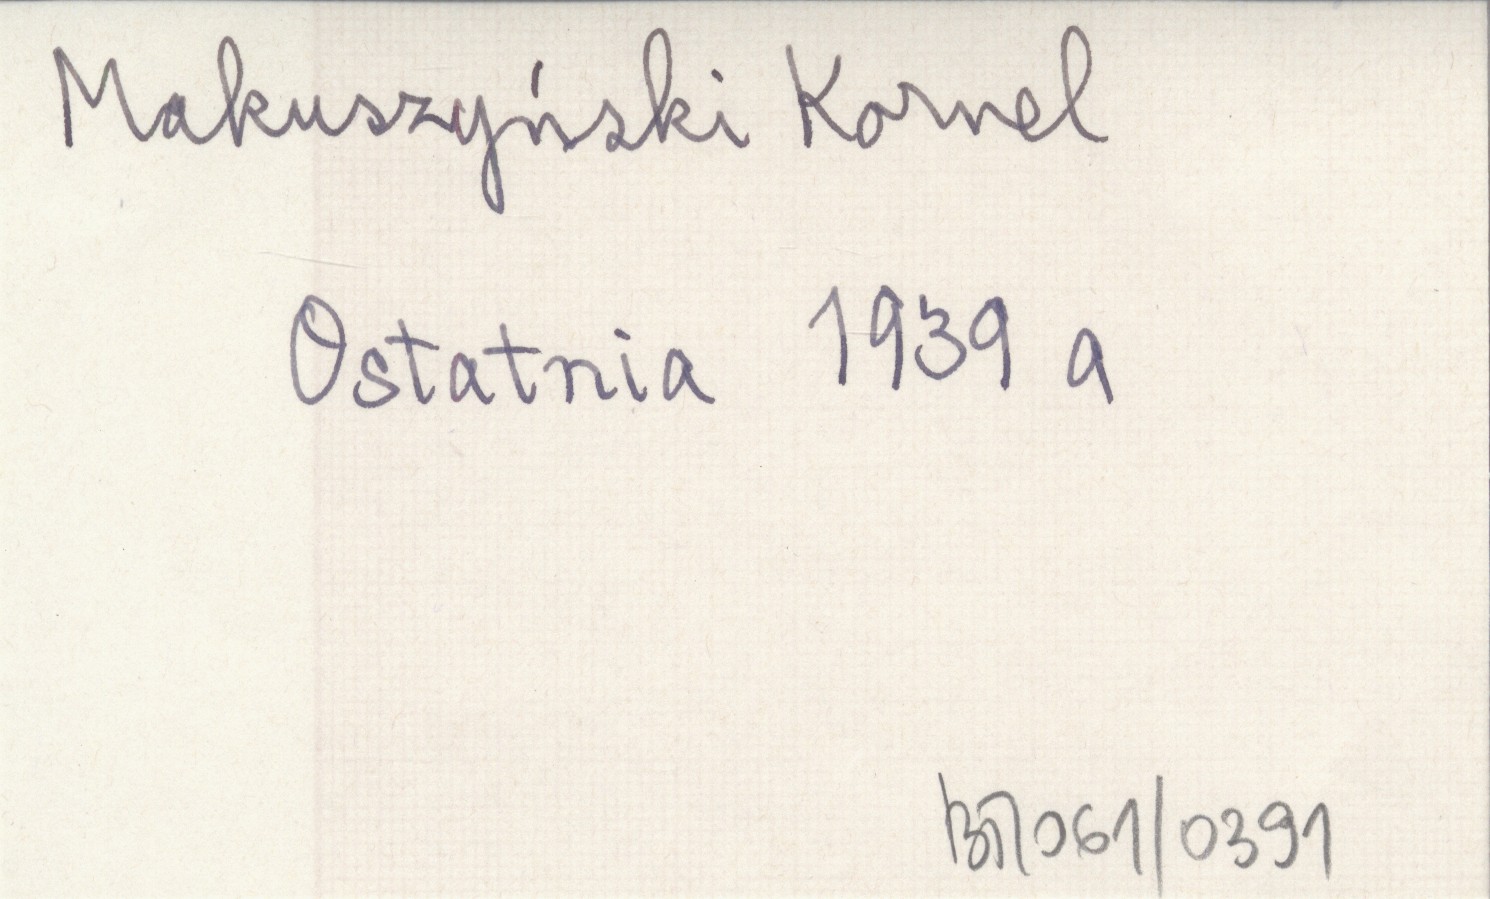 Makuszyński Kornel
Ostatnia 1939 a
061/0391